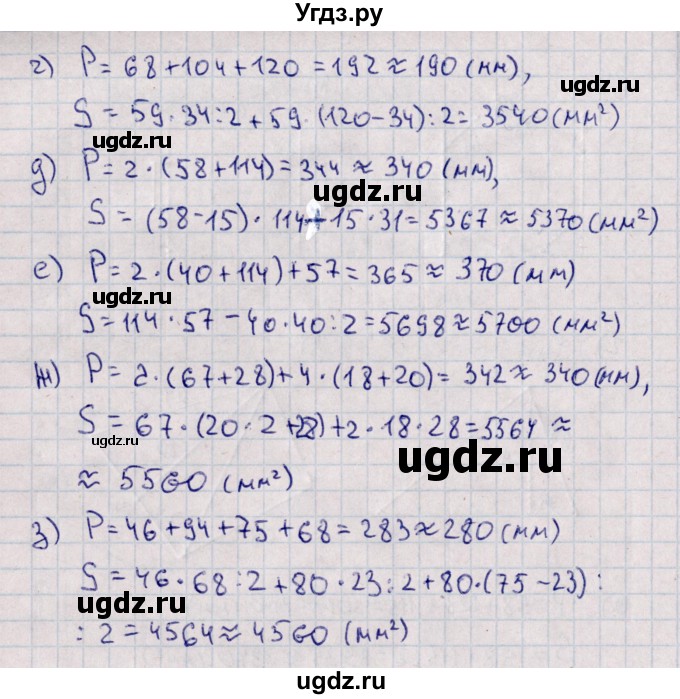 Угдз.ру
г) P = 68 + 104 + 120 = 192 ≈ 190 (мм),
S = 59 · 34 : 2 + 59 · (120 - 34) : 2 = 3540 (мм²)
ugdz.ru
ugdz.ru
д) P = 2 · (58 + 114) = 344 ≈ 340 (мм),
ugdz.ru
S = (58 - 15) · 114 + 15 · 31 = 5367 ≈ 5370 (мм²)
е) P = 2 · (40 + 114) + 57 = 365 ≈ 370 (мм)
ugdz.ru
S = 114 · 57 - 40 · 40 : 2 = 5698 ≈ 5700 (мм²)
ugdz.ru
ж) P = 2 · (67 + 28) + 4 · (18 + 20) = 342 ≈ 340 (мм),
S = 67 · (20 · 2 + 28) + 2 · 18 · 28 = 5564 ≈
ugdz.ru
ugdz.ru
≈ 5560 (мм²)
з) P = 46 + 94 + 75 + 68 = 283 ≈ 280 (мм)
S = 46 · 68 : 2 + 80 · 23 : 2 + 80 · (75 - 23) :
ugdz.ru
: 2 = 4564 ≈ 4560 (мм²)
ugdz.ru
ugdz.ru